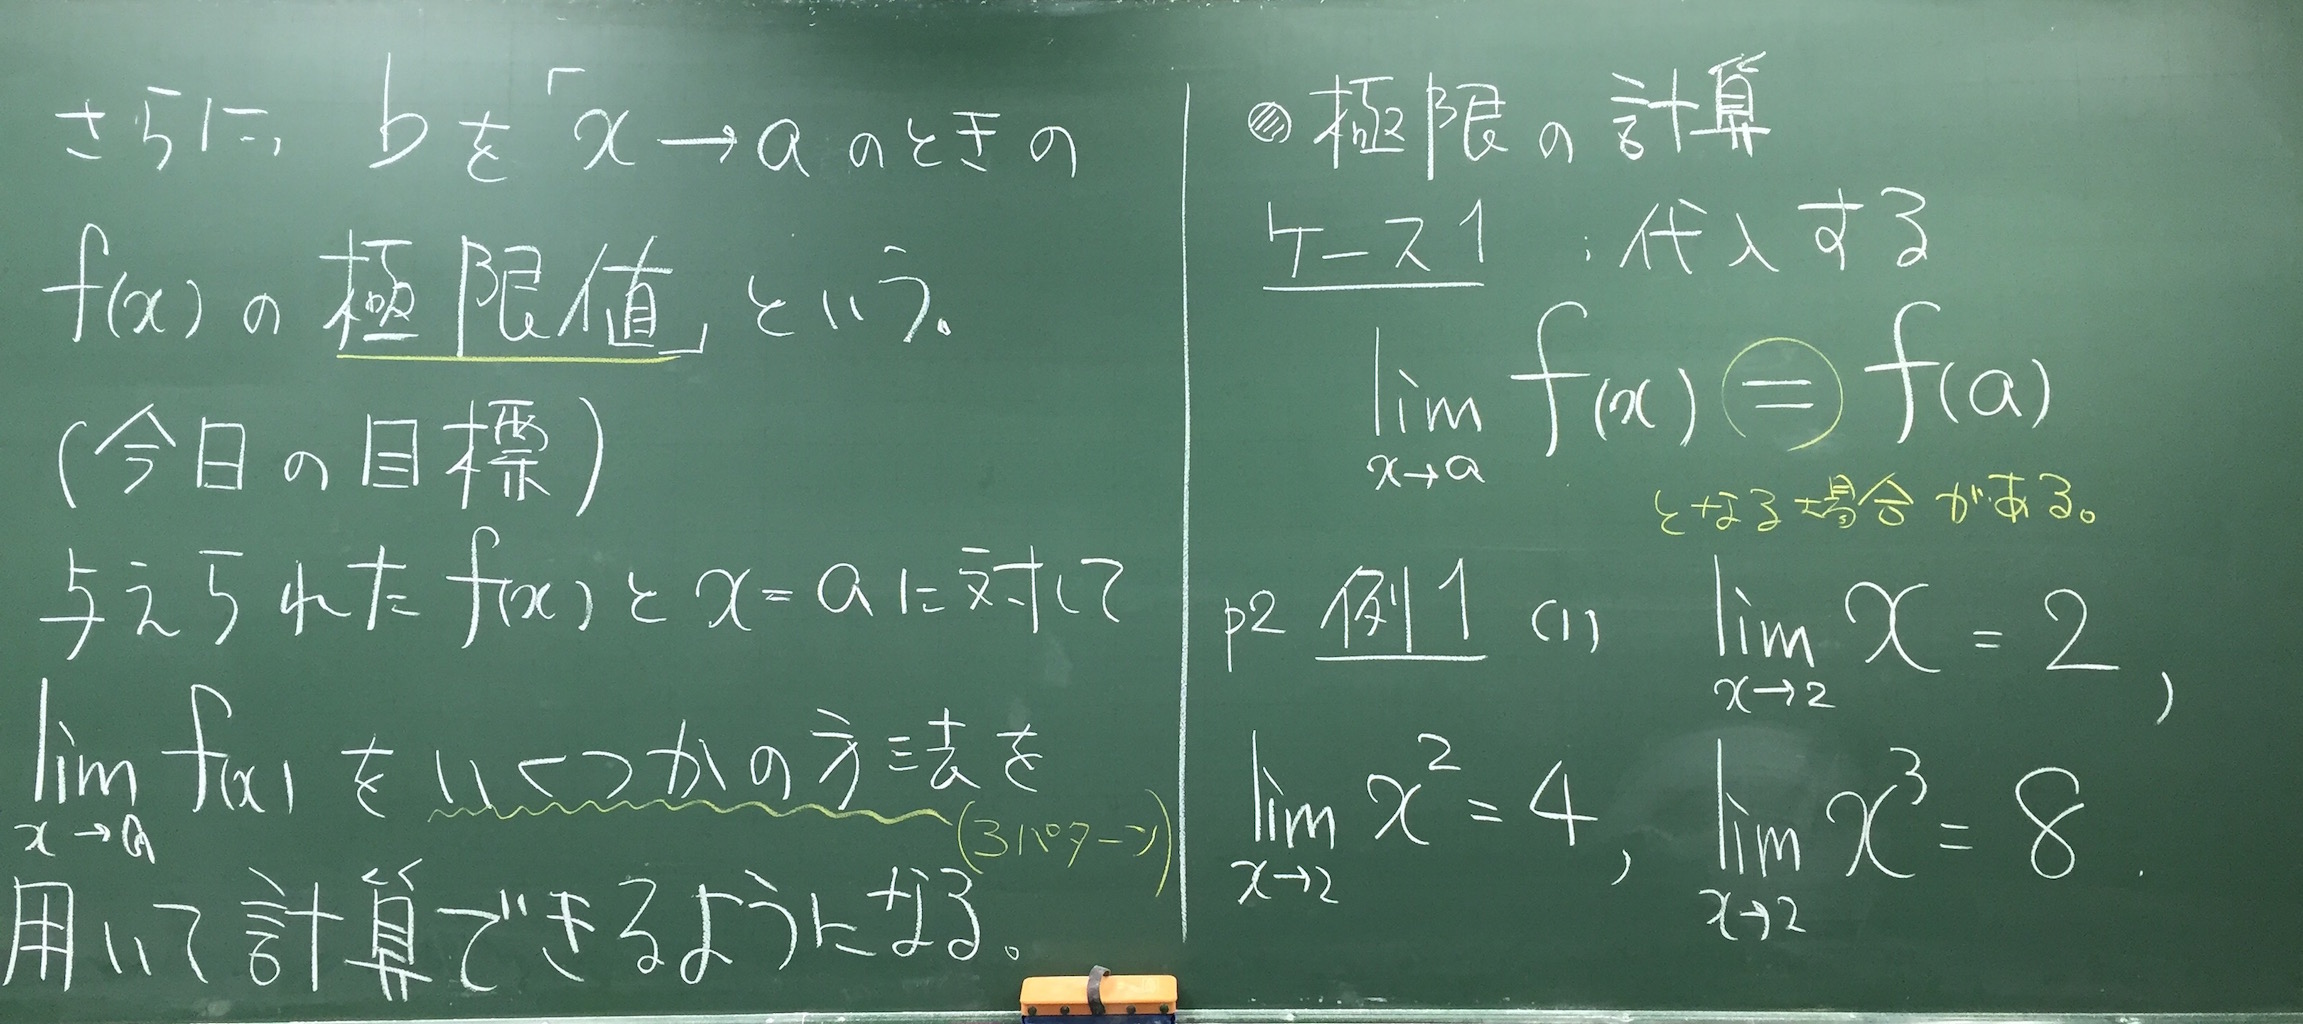 さらに, bを「x→aのときの
f(x)の極限値」という。
(今日の目標)
与えられたf(x)とx=aに対して
lim f(x)をいくつかの方法を
x→a
(3パターン)
用いて計算できるようになる。
◎極限の計算
ケース1 : 代入する
lim f(x) = f(a)
x→a
となる場合がある。
p2 例1 (1) lim x = 2,
x→2
lim x² = 4, lim x³ = 8.
x→2 x→2